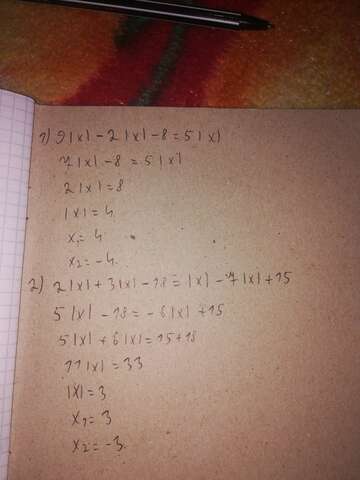 1) 9|x| - 2|x| - 8 = 5|x|
7|x| - 8 = 5|x|
2|x| = 8
|x| = 4
x₁ = 4
x₂ = -4
2) 2|x| + 3|x| - 18 = |x| - 7|x| + 15
5|x| - 18 = -6|x| + 15
5|x| + 6|x| = 15 + 18
11|x| = 33
|x| = 3
x₁ = 3
x₂ = -3